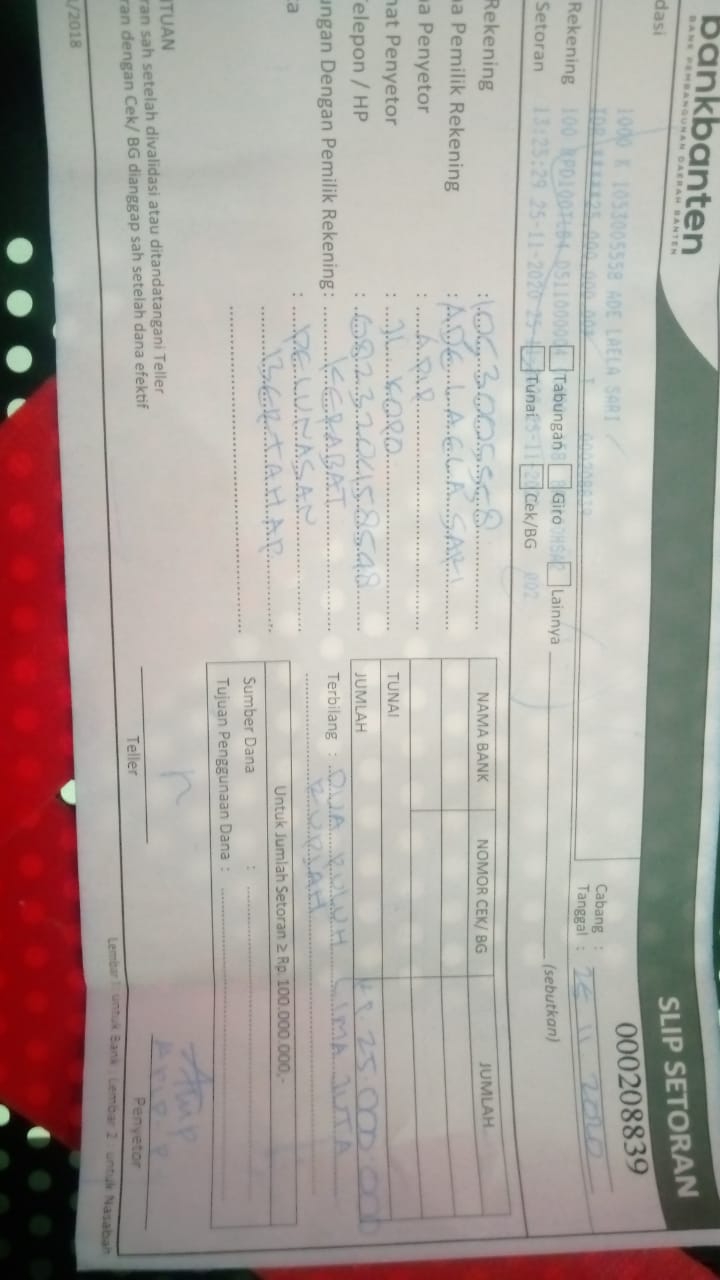 bankbanten
BANK PEMBANGUNAN DAERAH BANTEN
SLIP SETORAN
000208839
dasi
1000 K 1053005558 ADE LAELA SARI /
000208839
Cabang :
Tanggal : 25 11 2020
Rekening Tabungan Giro Lainnya (sebutkan)
Setoran 13:25:29 25-11-2020 Tunai Cek/BG 002
Rekening : 1053005558
a Pemilik Rekening : ADE LAELA SARI
a Penyetor : APIP
at Penyetor :
elepon / HP :
ungan Dengan Pemilik Rekening : KERABAT
a : PELUNASAN
BERTAHAP
NAMA BANK NOMOR CEK/ BG JUMLAH
TUNAI
JUMLAH Rp. 25.000.000
Terbilang : DUA PULUH LIMA JUTA
RUPIAH
Untuk Jumlah Setoran ≥ Rp. 100.000.000,-
Sumber Dana :
Tujuan Penggunaan Dana :
TUAN
ran sah setelah divalidasi atau ditandatangani Teller
ran dengan Cek/ BG dianggap sah setelah dana efektif
Teller
Penyetor
/2018
Lembar 1 untuk Bank, Lembar 2 untuk Nasabah